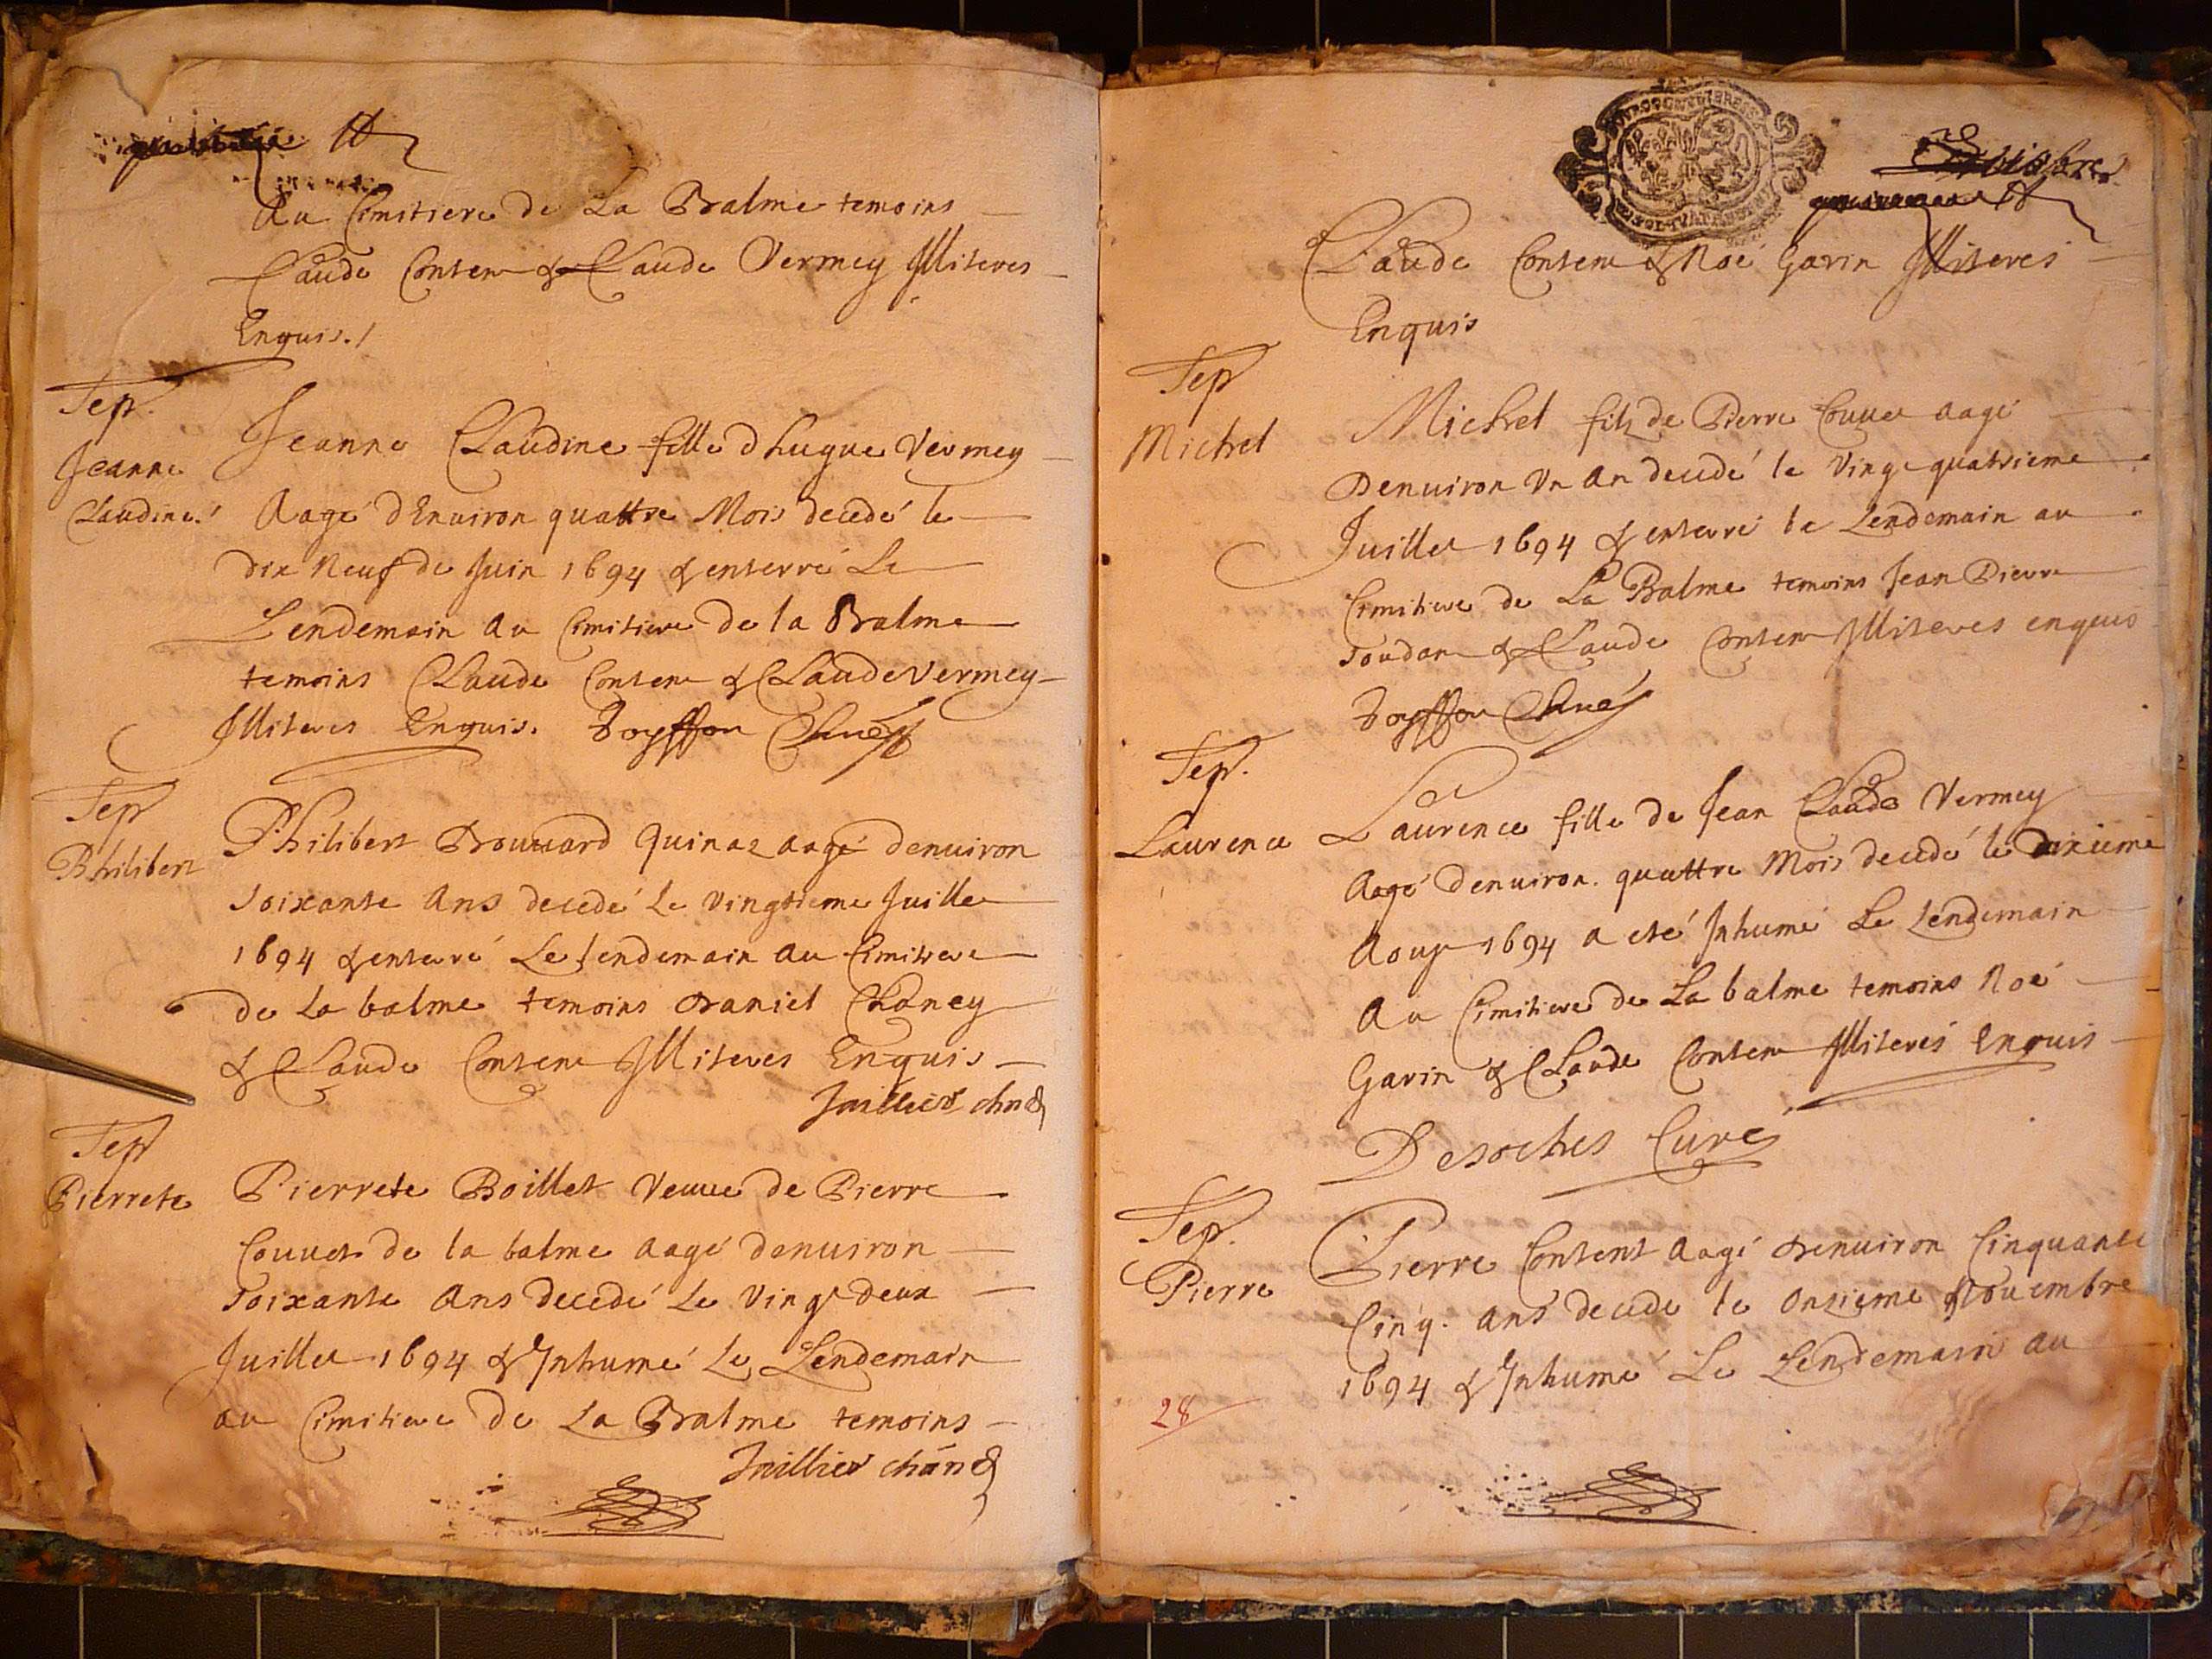 Au Cimitiere de La Balme temoins
Claude Contem & Claude Vermey Illiteres
Enquis./
Sep.
Jeanne
Claudine.
Jeanne Claudine fille d hugue Vermey
Aagé d'Enuiron quattre Mois decedé le
dix Neuf de Juin 1694 & enterré Le
Lendemain Au Cimitiere de la Balme
temoins Claude Contem & Claude Vermey
Illiteres Enquis.
Sep
Philibert
Philibert Quinaz aagé denuiron
soixante Ans decedé Le vingtieme Juillet
1694 & enterré Le lendemain au Cimitiere
de La balme temoins Daniel Chaney
& Claude Contem Illiteres Enquis
Juillier
Sep
Pierrete
Pierrete Boillet Veuue de Pierre
Couuet de la balme aagé denuiron
soixante Ans decedé Le Vingt deux
Juillet 1694 & Inhumé Le Lendemain
au Cimitiere de La Balme temoins
Juillier
Claude Contem & Noé Gavin Illiteres
Enquis
Sep
Michel
Michel filz de Pierre Couuet aagé
Denuiron Vn an decedé le Vingt quatrieme
Juillet 1694 & enterré le Lendemain au
Cimitiere de La Balme temoins Jean Pierre
& Claude Contem Illiteres enquis
Sep.
Laurence
Laurence fille de Jean Claude Vermey
Aagé denuiron quattre Mois decedé le dixieme
Aoust 1694 a eté Inhumé Le Lendemain
Au Cimitiere de La balme temoins Noé
Gavin & Claude Contem Illiterés Enquis
Desoches Curé
Sep.
Pierre
Pierre Content Aagé denuiron Cinquante
Cinq. ans decede le Onzieme Nouembre
1694 & Inhumé Le Lendemain au
28